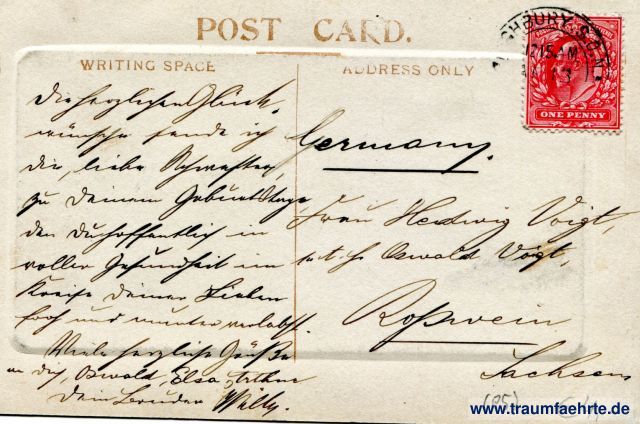 POST CARD.
WRITING SPACE
ADDRESS ONLY
ONE PENNY
Die herzlichsten Glück-
wünsche sende ich
dir, liebe Schwester,
zu Deinem Geburtstage
den Du hoffentlich in
voller Gesundheit im
Kreise Deiner Lieben
froh und munter verlebst.
Viele herzliche Grüße
an dich, Oswald, Elsa, Arthur
Dein Bruder Willy.
Germany.
Frau Hedwig Voigt,
Oswald Voigt,
Roßwein
Sachsen
(25)
www.traumfaehrte.de